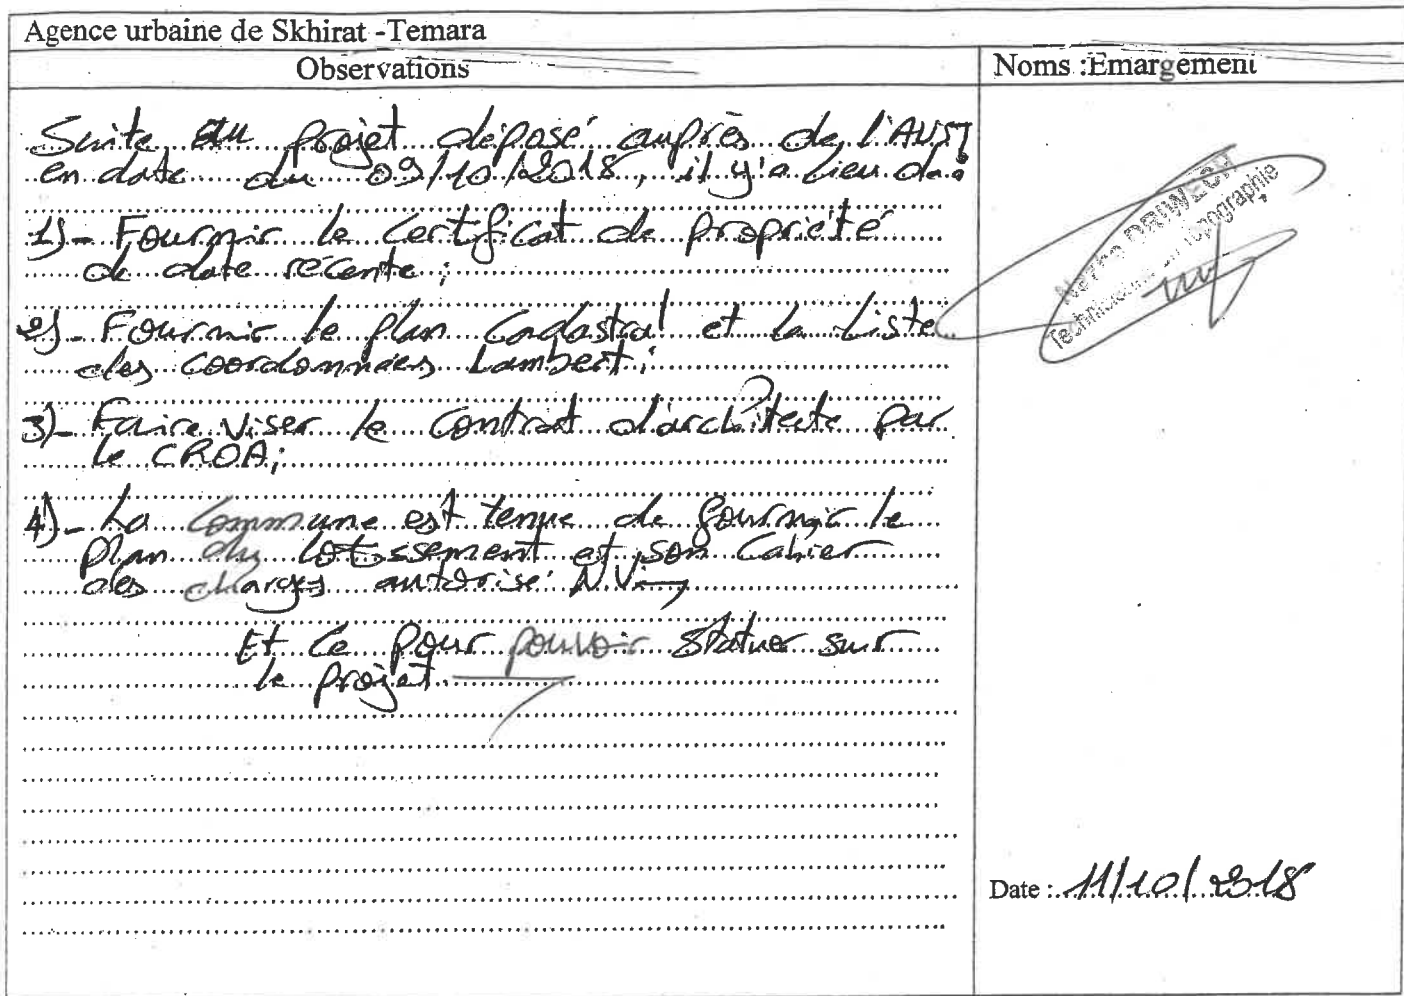 Agence urbaine de Skhirat -Temara
Observations
Noms :Emargement
Suite au projet déposé auprès de l'AUST
en date du 09/10/2018, il y'a lieu de:
1)- Fournir le certificat de propriété
de date récente;
2)- Fournir le plan Cadastral et la liste
des coordonnées Lambert;
3)- Faire viser le contrat d'architecte par
le CROA;
4)- La Commune est tenue de fournir le
plan du lotissement et son Cahier
des charges autorisé N.V
Et ce pour pouvoir statuer sur
le projet.
Technicienne en Topographie
Date : 11/10/2018